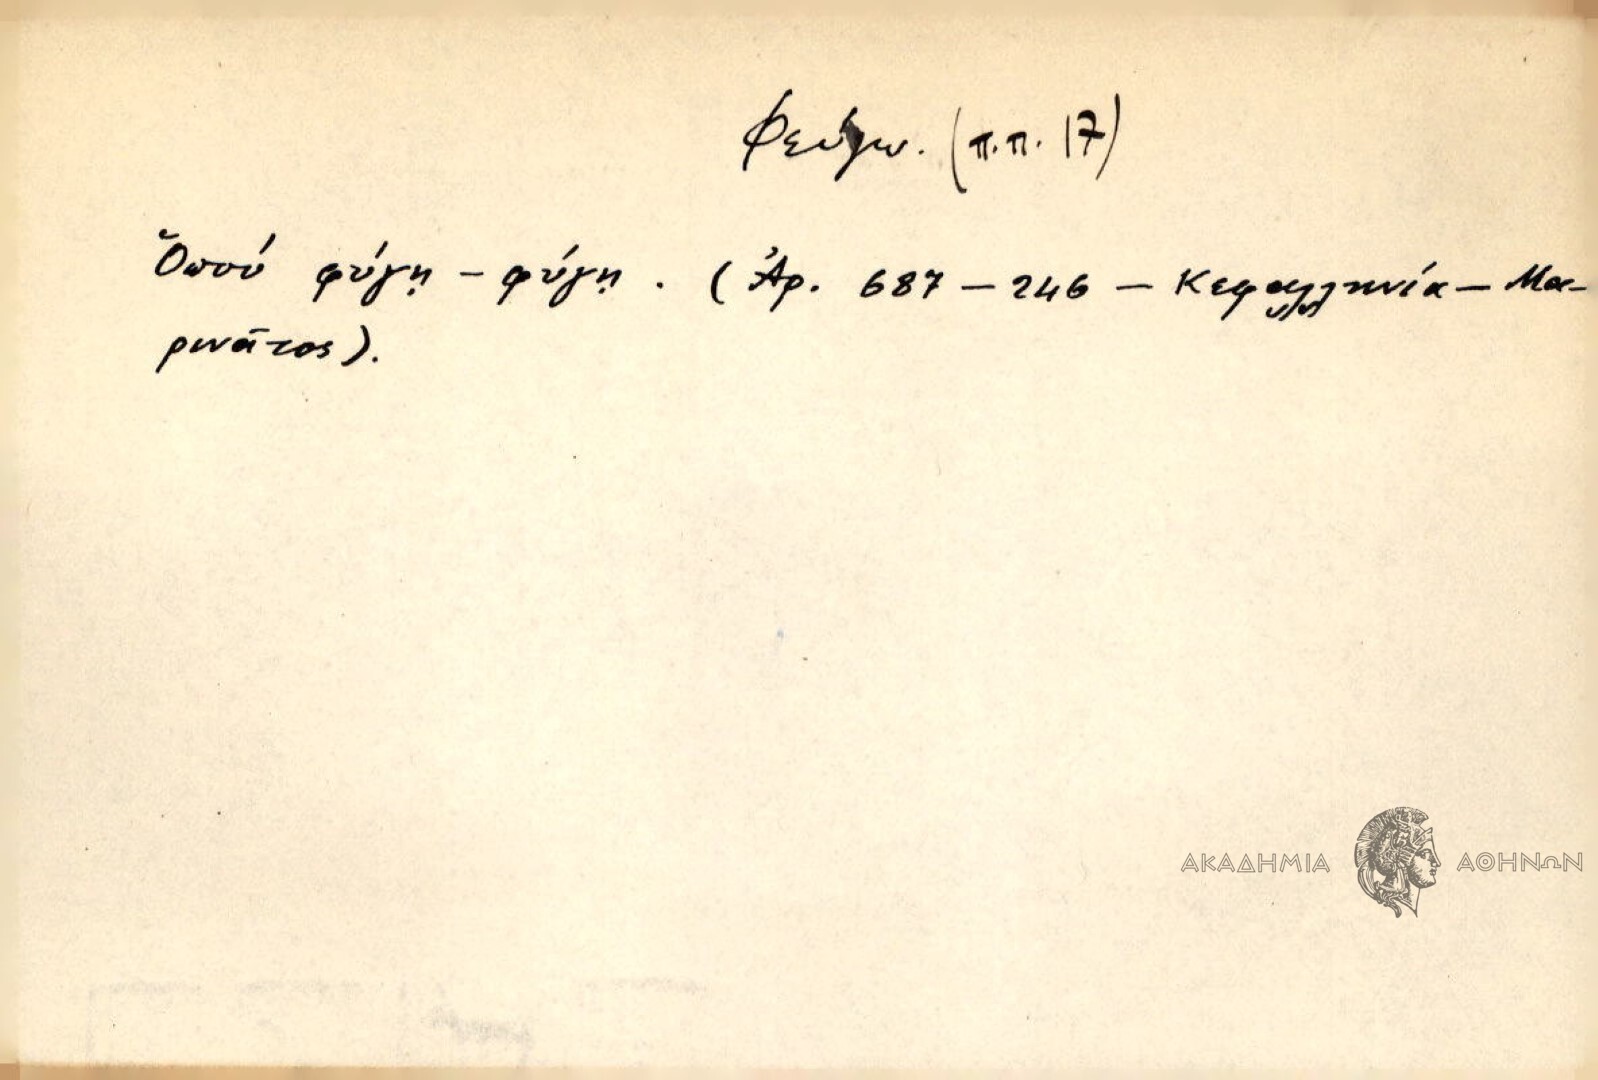 Φεύγω. (π.π. 17)
Ὁποὺ φύγῃ - φύγῃ. (Ἀρ. 687 - 246 - Κεφαλληνία - Μα-
ρινᾶτος).
ΑΚΑΔΗΜΙΑ ΑΘΗΝΩΝ